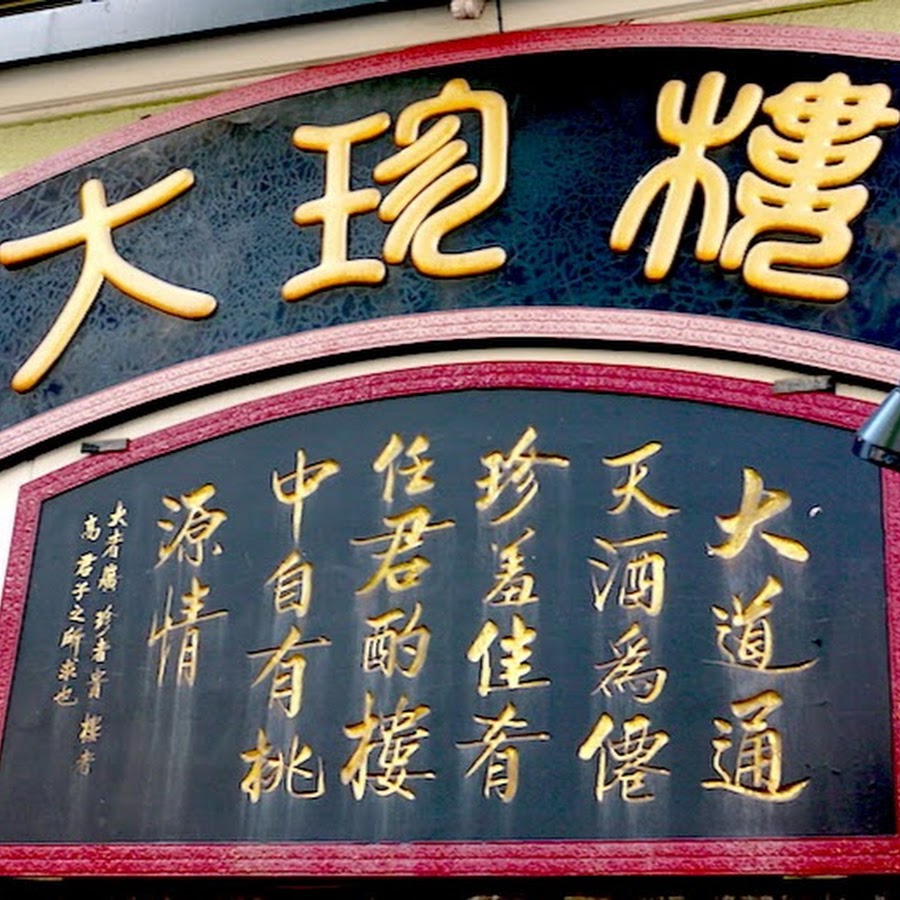 大珍樓
大道通
天酒為僊
珍羞佳肴
任君酌樓
中自有桃
源情
大者廣 珍者貴 樓者
高 君子之所求也